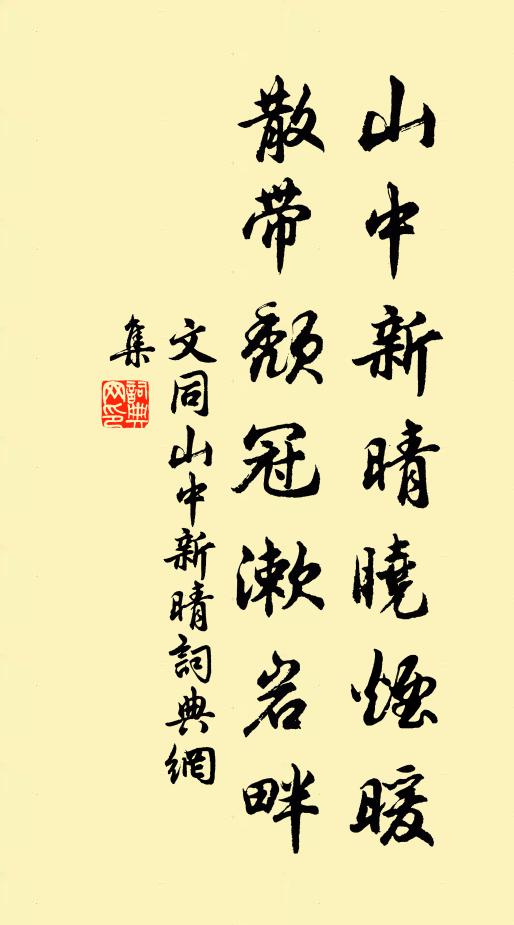 山中新晴曉煙暖
散带頹冠漱岩畔
文同山中新晴詞典網
集
詞典
网印